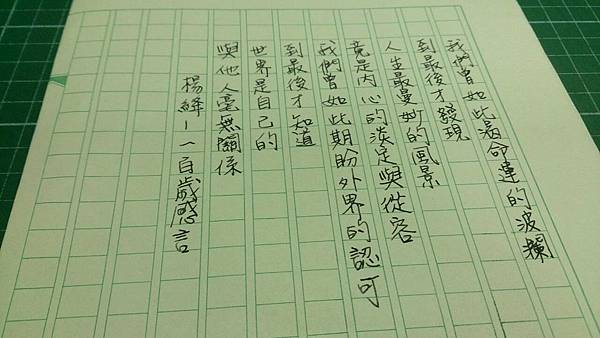 我們曾如此命運的波瀾
到最後才發現
人生最曼妙的風景
竟是內心的淡定與從容
我們曾如此期盼外界的認可
到最後才知道
世界是自己的
與他人毫無關係
楊絳-一百歲感言